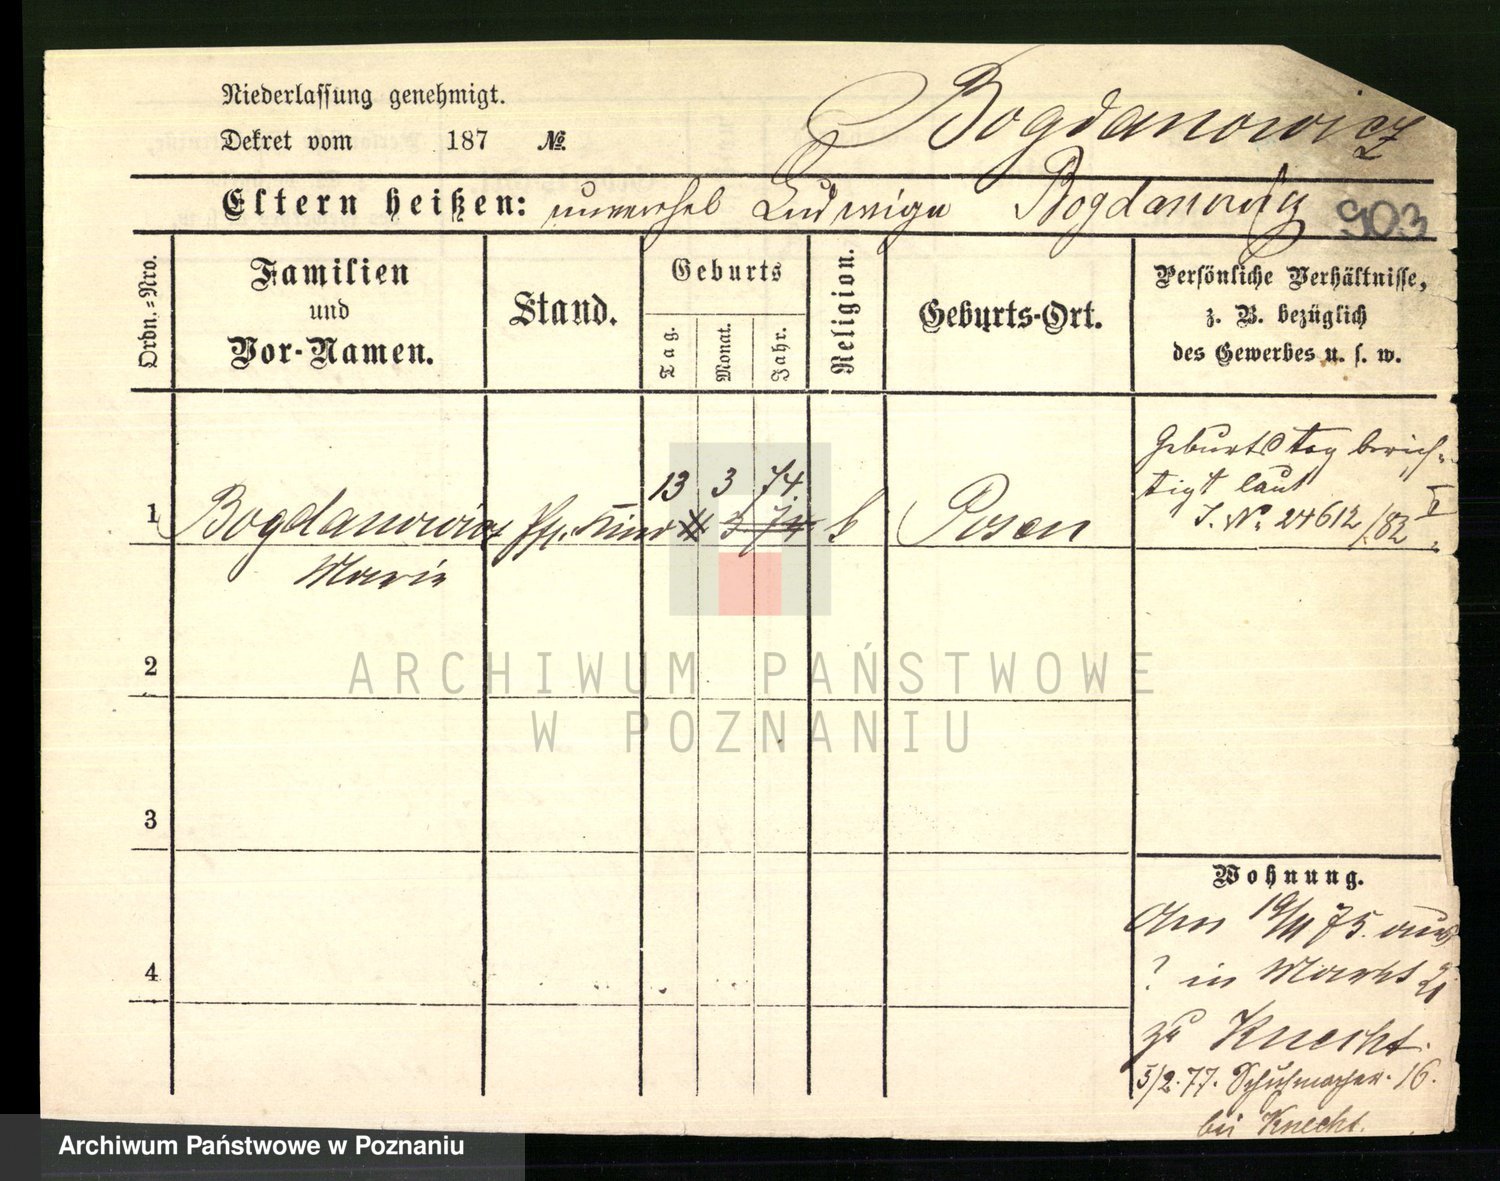 Niederlassung genehmigt.
Dekret vom 187 №
Bogdanowicz
Eltern heißen: unverehel Ludwiga Bogdanowicz
903
Ordn.-Nro.
Familien
und
Vor-Namen.
Stand.
Geburts
Tag.
Monat.
Jahr.
Religion.
Geburts-Ort.
Persönliche Verhältnisse,
z. B. bezüglich
des Gewerbes u. s. w.
Geburtstag berich-
tigt laut
J. No 24612/82 I
13 3 74.
1 Bogdanowicz Kind 3 74 k Posen
Marie
2
3
4
Wohnung.
Am 19/11 75. aus
? in Markt
zu Knecht.
5/2.77. Schuhmacher. 16.
bei Knecht.
ARCHIWUM PAŃSTWOWE
W POZNANIU
Archiwum Państwowe w Poznaniu